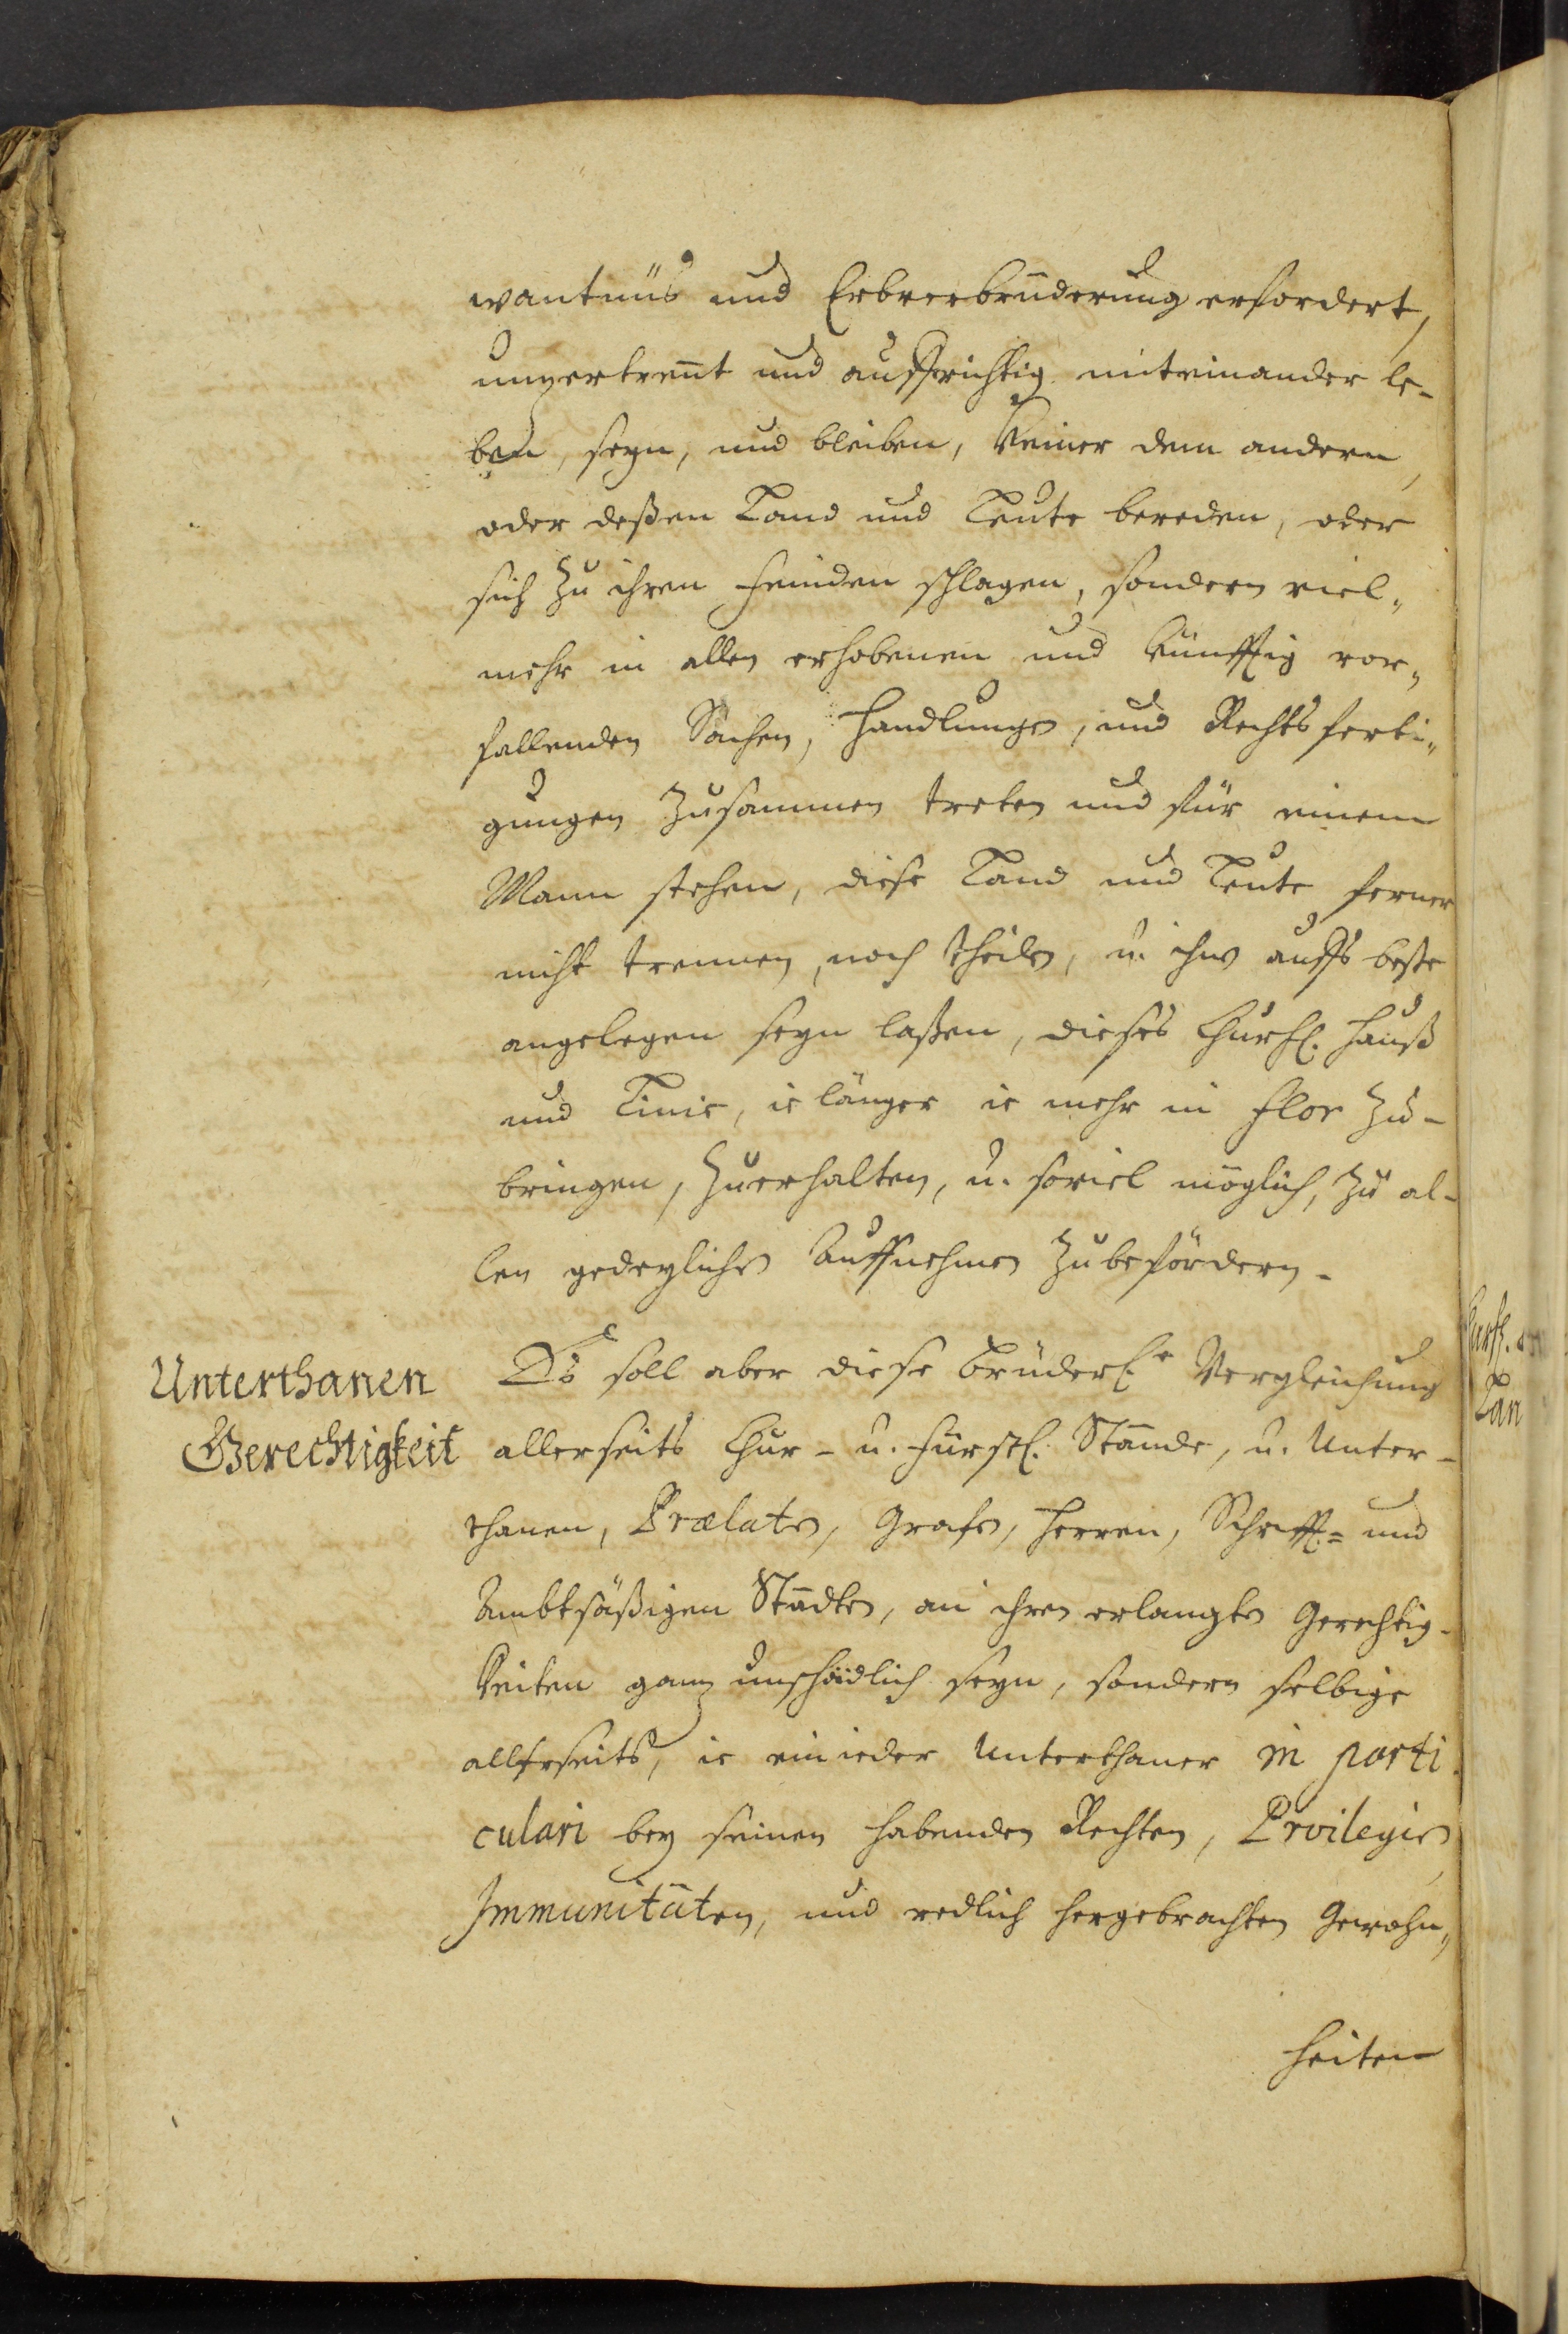 wantnüs und Erbverbrüderung erfordert,
unzertrent und auffrichtig miteinander le-
ben, seyn, und bleiben, Keiner dem andern,
oder deßen Land und Leute bereden, oder
sich zu ihren Feinden schlagen, sondern viel„
mehr in allen erhobenen und künfftig vor„
fallenden Sachen, Handlungen, und Rechtsferti„
gungen zusammen treten und für einem
Mann stehen, diese Land und Leute ferner
nicht trennen, noch theilen, u. ihnen auffs beste
angelegen seyn laßen, dieses Churfl. Hauß
und Linie, ie länger ie mehr in Flor zu-
bringen, zuerhalten, u. soviel möglich, zu al-
len gedeylichen Auffnehmen zubefördern.
Unterthanen
Gerechtigkeit
Es soll aber diese brüderl.e Vergleichung
allerseits Chur- u. Fürstl. Stände, u. Unter-
thanen, Prælaten, Grafen, Herren, Schrifft.= und
Ambtsäßigen Städten, an ihren erlangten Gerechtig-
keiten ganz unschädlich seyn, sondern selbige
allerseits, ie ein ieder Unterthaner in parti
culari bey seinen habenden Rechten, Privilegien
Immunitäten, und redlich hergebrachten Gewohn„
heiten